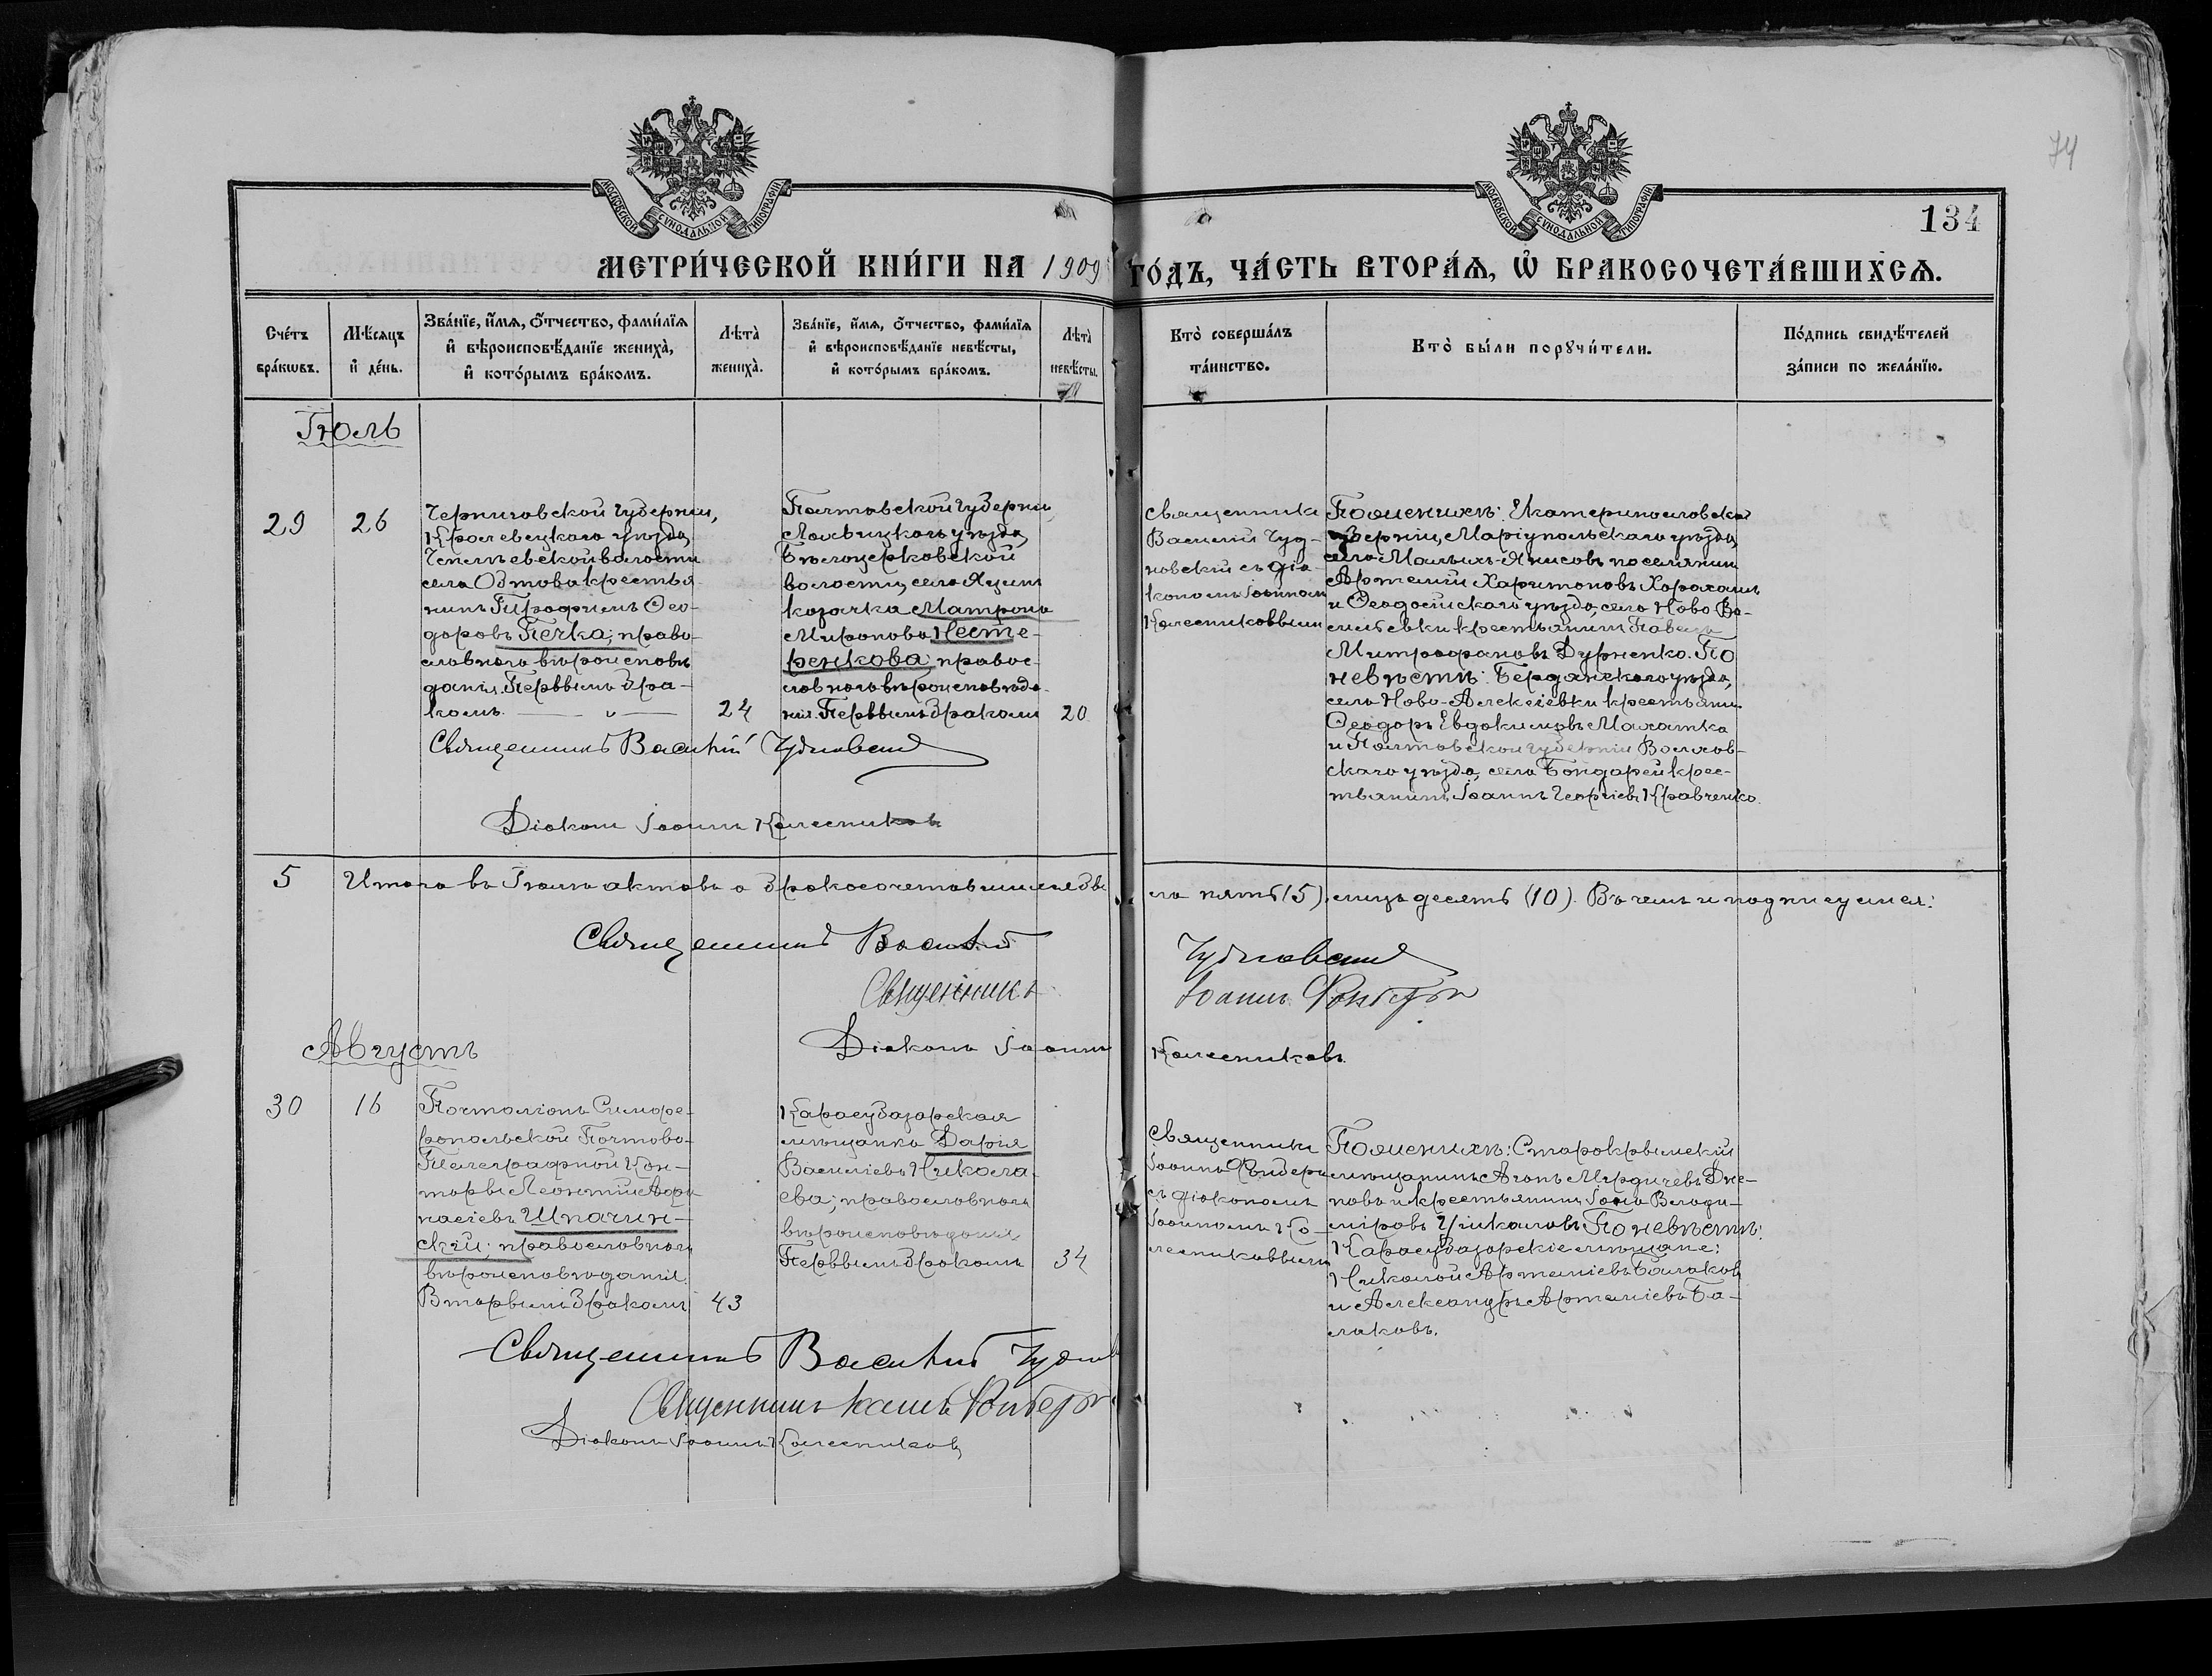 74
МОСКОВСКОЙ СѴНОДАЛЬНОЙ ТИПОГРАФІИ
МОСКОВСКОЙ СѴНОДАЛЬНОЙ ТИПОГРАФІИ
134
МЕТРИ́ЧЕСКОЙ КНИ́ГИ НА 1909 ГО́ДЪ, ЧА́СТЬ ВТОРА́Ѧ, Ѡ҆ БРАКОСОЧЕТА́ВШИХСѦ.
Сче́тъ бра́кѡвъ.
Мѣ́сяцъ и҆ де́нь.
Зва́нїе, и҆́мѧ, ѻ҆́тчество, фами́лїѧ
и҆ вѣроисповѣ́данїе жениха̀,
и҆ кото́рымъ бра́комъ.
Лѣта̀ жениха̀.
Зва́нїе, и҆́мѧ, ѻ҆́тчество, фами́лїѧ
и҆ вѣроисповѣ́данїе невѣ́сты,
и҆ кото́рымъ бра́комъ.
Лѣта̀ невѣ́сты.
Кто̀ соверша́лъ та́инство.
Кто̀ бы́ли порꙋчи́тели.
По́дпись свидѣ́телей за́писи по жела́нїю.
Іюль
29
26
Черниговской губерніи,
Кролевецкаго уѣзда,
Чепльевской волости
села Обтова крестья-
нинъ Трофимъ Ѳео-
доровъ Печка; право-
славнаго вѣроисповѣ-
данія. Первымъ бра-
комъ
24
Полтавской губерніи
Лохвицкаго уѣзда,
Бѣлоцерковской
волости, села Яцинъ
козачка Матрона
Миронова Несте-
ренкова правос-
лавнаго вѣроисповѣда-
нія. Первымъ бракомъ
20
Священникъ
Василій Чуд-
новскій съ діа-
кономъ Іоанномъ
Колесниковымъ
По женихѣ: Екатеринославской
губерніи, Маріупольскаго уѣзда,
села Малыхъ-Янисоль поселянинъ
Артемій Харитоновъ Хорохашъ
и Ѳеодосійскаго уѣзда, села Ново Ва-
сильевки крестьянинъ Павелъ
Митрофановъ Дурненко. По
невѣстѣ: Бердянскаго уѣзда,
села Ново-Алексіевки крестьянинъ
Ѳеодоръ Евдокимовъ Махатка
и Полтавской губерніи Валков-
скаго уѣзда, села Бондарей крес-
тьянинъ Іоаннъ Георгіевъ Кравченко.
Священникъ Василій Чудновскій
Діаконъ Іоаннъ Колесниковъ
5
Итого въ Іюлѣ актовъ о бракосочетавшихся бы-
ло пять (5), лицъ десять (10). Въ чемъ и подписуемся:
Священникъ Василій Чудновскій
Священникъ Іоаннъ
Діаконъ Іоаннъ Колесниковъ.
Августъ
30
16
Почталіонъ Симфе-
ропольской Почтово-
Телеграфной Кон-
торы Леонтій Афа-
насіевъ Шпачин-
скій; православнаго
вѣроисповѣданія.
Вторымъ бракомъ
43
Карасубазарская
мѣщанка Дарія
Василіевъ Никола-
ева; православнаго
вѣроисповѣданія.
Первымъ бракомъ
34
Священникъ
Іоаннъ
съ діакономъ
Іоанномъ Ко-
лесниковымъ
По женихѣ: Старокрымскій
мѣщанинъ Агопъ Мердичевъ Дже-
повъ и крестьянинъ Іоаннъ Влади-
міровъ Чикаловъ. По невѣстѣ:
Карасубазарскіе мѣщане:
Николай Артеміевъ Балаковъ
и Александръ Артеміевъ Ба-
лаковъ.
Священникъ Василій
Священникъ Іоаннъ
Діаконъ Іоаннъ Колесниковъ